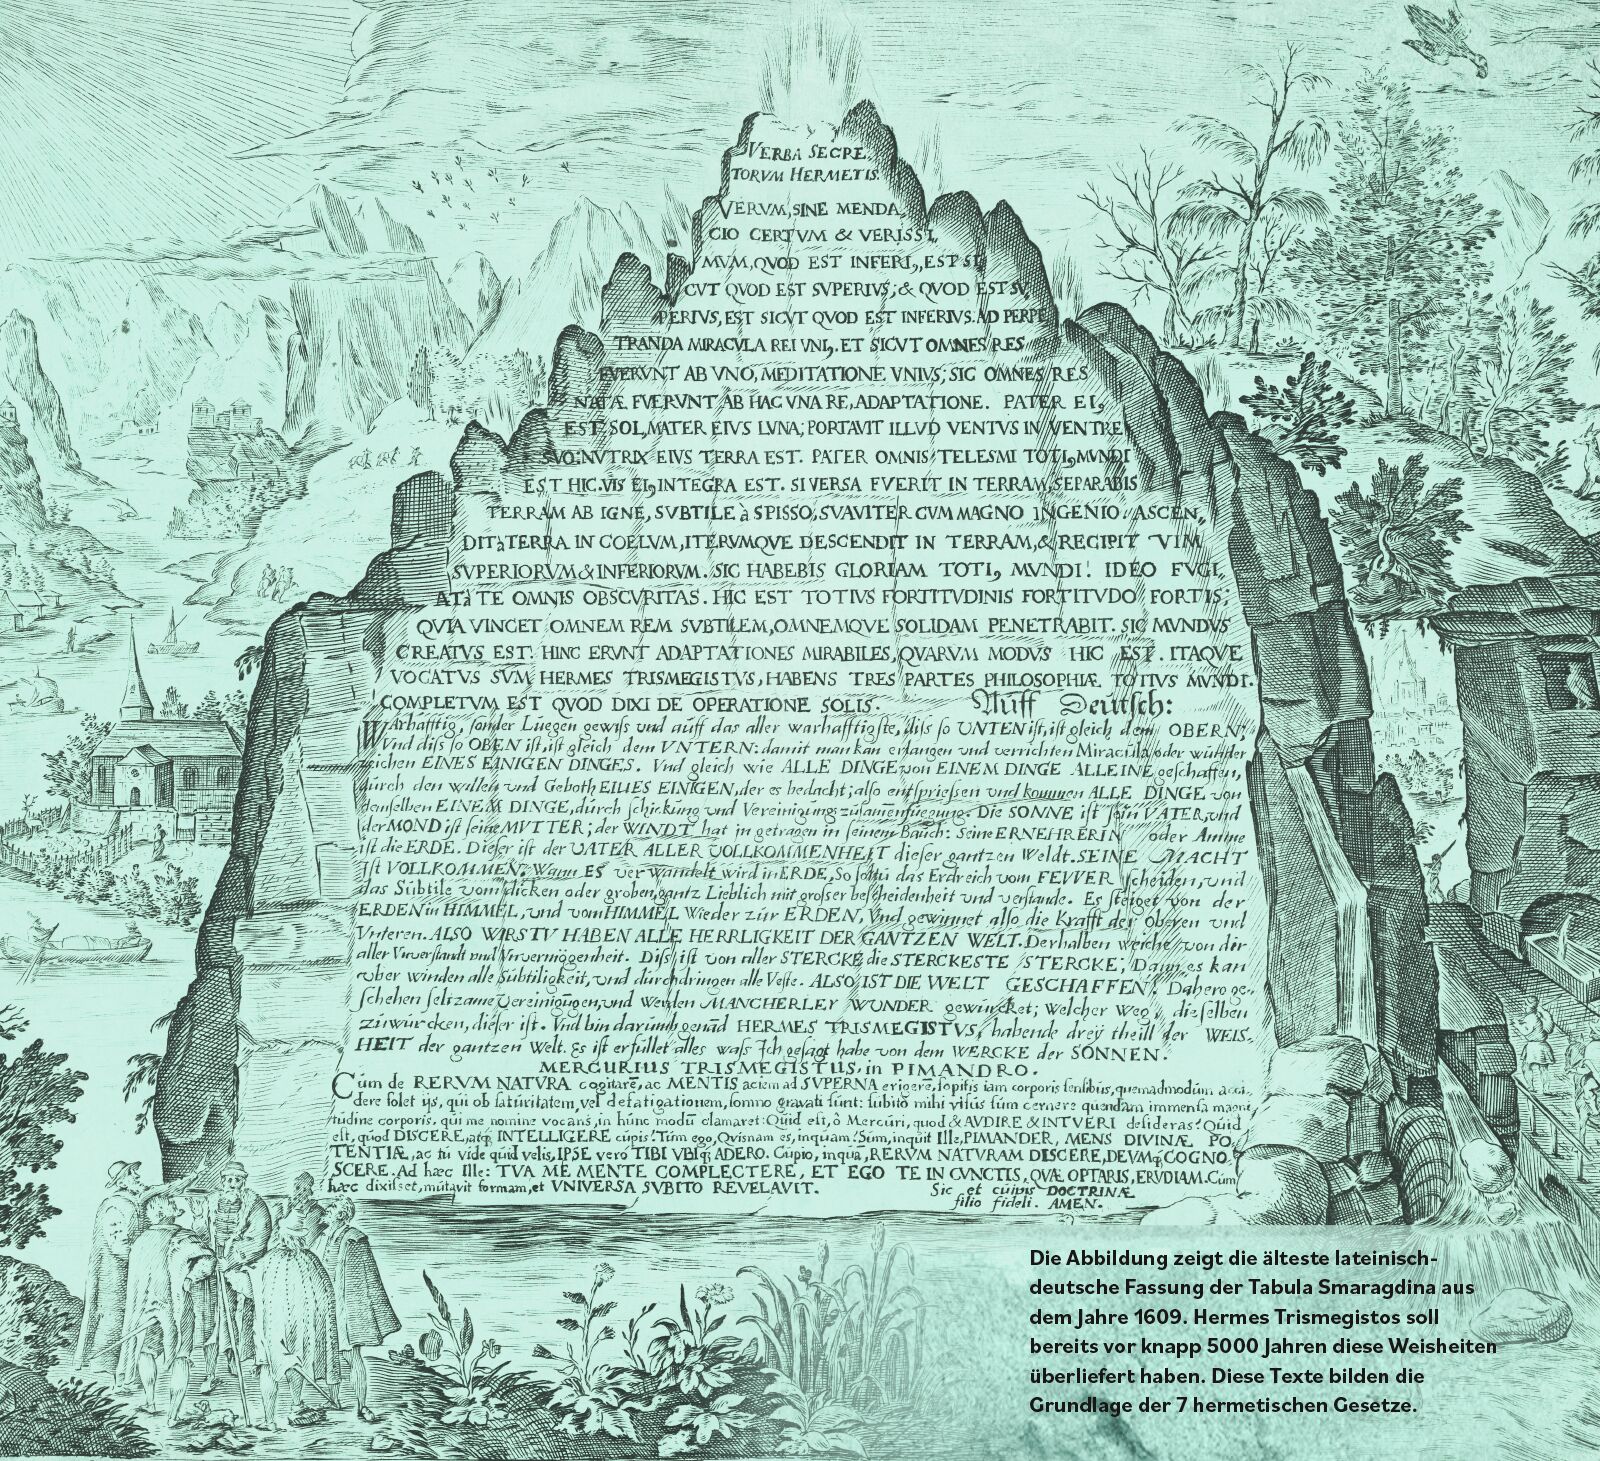 VERBA SECRE,
TORVM HERMETIS.
VERVM, SINE MENDA,
CIO CERTVM & VERISSI,
MVM, QVOD EST INFERI9, EST SI
CVT QVOD EST SVPERIVS; & QVOD EST SV,
PERIVS, EST SICVT QVOD EST INFERIVS. AD PERPE
TRANDA MIRACVLA REI VNI9. ET SICVT OMNES RES
FVERVNT AB VNO, MEDITATIONE VNIVS; SIC OMNES RES
NATÆ FVERVNT AB HAC VNA RE, ADAPTATIONE. PATER EI9
EST SOL, MATER EIVS LVNA; PORTAVIT ILLVD VENTVS IN VENTRE
SVO: NVTRIX EIVS TERRA EST. PATER OMNIS TELESMI TOTI9 MVNDI
EST HIC. VIS EI9 INTEGRA EST. SI VERSA FVERIT IN TERRAM, SEPARABIS
TERRAM AB IGNE, SVBTILE à SPISSO, SVAVITER CVM MAGNO INGENIO. ASCEN,
DIT à TERRA IN COELVM, ITERVMQVE DESCENDIT IN TERRAM, & RECIPIT VIM
SVPERIORVM & INFERIORVM. SIC HABEBIS GLORIAM TOTI9 MVNDI! IDEO FVGI,
AT à TE OMNIS OBSCVRITAS. HIC EST TOTIVS FORTITVDINIS FORTITVDO FORTIS;
QVIA VINCET OMNEM REM SVBTILEM, OMNEMQVE SOLIDAM PENETRABIT. SIC MVNDVS
CREATVS EST. HINC ERVNT ADAPTATIONES MIRABILES, QVARVM MODVS HIC EST. ITAQVE
VOCATVS SVM HERMES TRISMEGISTVS, HABENS TRES PARTES PHILOSOPHIÆ TOTIVS MVNDI.
COMPLETVM EST QVOD DIXI DE OPERATIONE SOLIS. Auff Deutsch:
WArhafftig, sonder Luegen gewiss und auff das aller warhafftigste, diss so UNTEN ist, ist gleich dem OBERN;
Vnd diss so OBEN ist, ist gleich dem VNTERN: damit man kan erlangen und verrichten Miracula oder wunder
zeichen EINES EINIGEN DINGES. Vnd gleich wie ALLE DINGE von EINEM DINGE ALLEINE geschaffen,
durch den willen und Geboth EINES EINIGEN, der es bedacht; also entspriessen und kommen ALLE DINGE von
demselben EINEM DINGE, durch schickung und Vereinigung zusamenfuegung. Die SONNE ist sein VATER, und
der MOND ist seine MVTTER; der WINDT hat jn getragen in seinem Bauch: Seine ERNEHRERIN oder Amme
ist die ERDE. Dieser ist der VATER ALLER VOLLKOMMENHEIT dieser gantzen Weldt. SEINE MACHT
Ist VOLLKOMMEN; Wann ES verwandelt wird in ERDE, So soltu das Erdreich vom FEWER scheiden, und
das Subtile vom dicken oder groben, gantz Lieblich mit grosser bescheidenheit und verstande. Es steiget von der
ERDEN in HIMMEL, und vom HIMMEL Wieder zur ERDEN, Vnd gewinnet also die Krafft der Oberen und
Vnteren. ALSO WIRSTV HABEN ALLE HERRLIGKEIT DER GANTZEN WELT. Derhalben weiche von dir
aller Vnverstandt und Vnvermögenheit. Diss ist von aller STERCKE die STERCKESTE STERCKE; Dann es kan
vber winden alle Subtiligkeit, und durchdringen alle Veste. ALSO IST DIE WELT GESCHAFFEN. Dahero ge,
schehen seltzame Vereinigungen, und Werden MANCHERLEY WUNDER gewürcket; Welcher Weg, dieselben
zuwürcken, dieser ist. Vnd bin darumb genād HERMES TRISMEGISTVS, habende drey theill der WEIS,
HEIT der gantzen Welt. Es ist erfüllet alles wass Ich gesagt habe von dem WERCKE der SONNEN.
MERCURIUS TRISMEGISTUS, in PIMANDRO.
Cùm de RERVM NATVRA cogitarē, ac MENTIS aciem ad SUPERNA erigerē, sopitis iam corporis sensibus, quemadmodùm acci,
dere solet ijs, qui ob saturitatem, vel defatigationem, somno gravati sunt: subitò mihi visus sum cernere quendam immensa magni,
tudine corporis, qui me nomine vocans, in hunc modū clamaret: Quid est, ô Mercuri, quod & AVDIRE & INTVERI desideras? Quid
est, quod DISCERE, atq; INTELLIGERE cupis? Tùm ego, Quisnam es, inquam? Sum, inquit Ille, PIMANDER, MENS DIVINÆ PO,
TENTIÆ, ac tu vide quid velis, IPSE verò TIBI VBIq; ADERO. Cupio, inquā, RERVM NATURAM DISCERE, DEVMq; COGNO,
SCERE. Ad hæc Ille: TVA ME MENTE COMPLECTERE, ET EGO TE IN CVNCTIS, QVÆ OPTARIS, ERVDIAM. Cùm
hæc dixisset, mutavit formam, et VNIVERSA SVBITO REVELAVIT.
Sic et cuius DOCTRINÆ
filio fideli. AMEN.
Die Abbildung zeigt die älteste lateinisch-
deutsche Fassung der Tabula Smaragdina aus
dem Jahre 1609. Hermes Trismegistos soll
bereits vor knapp 5000 Jahren diese Weisheiten
überliefert haben. Diese Texte bilden die
Grundlage der 7 hermetischen Gesetze.